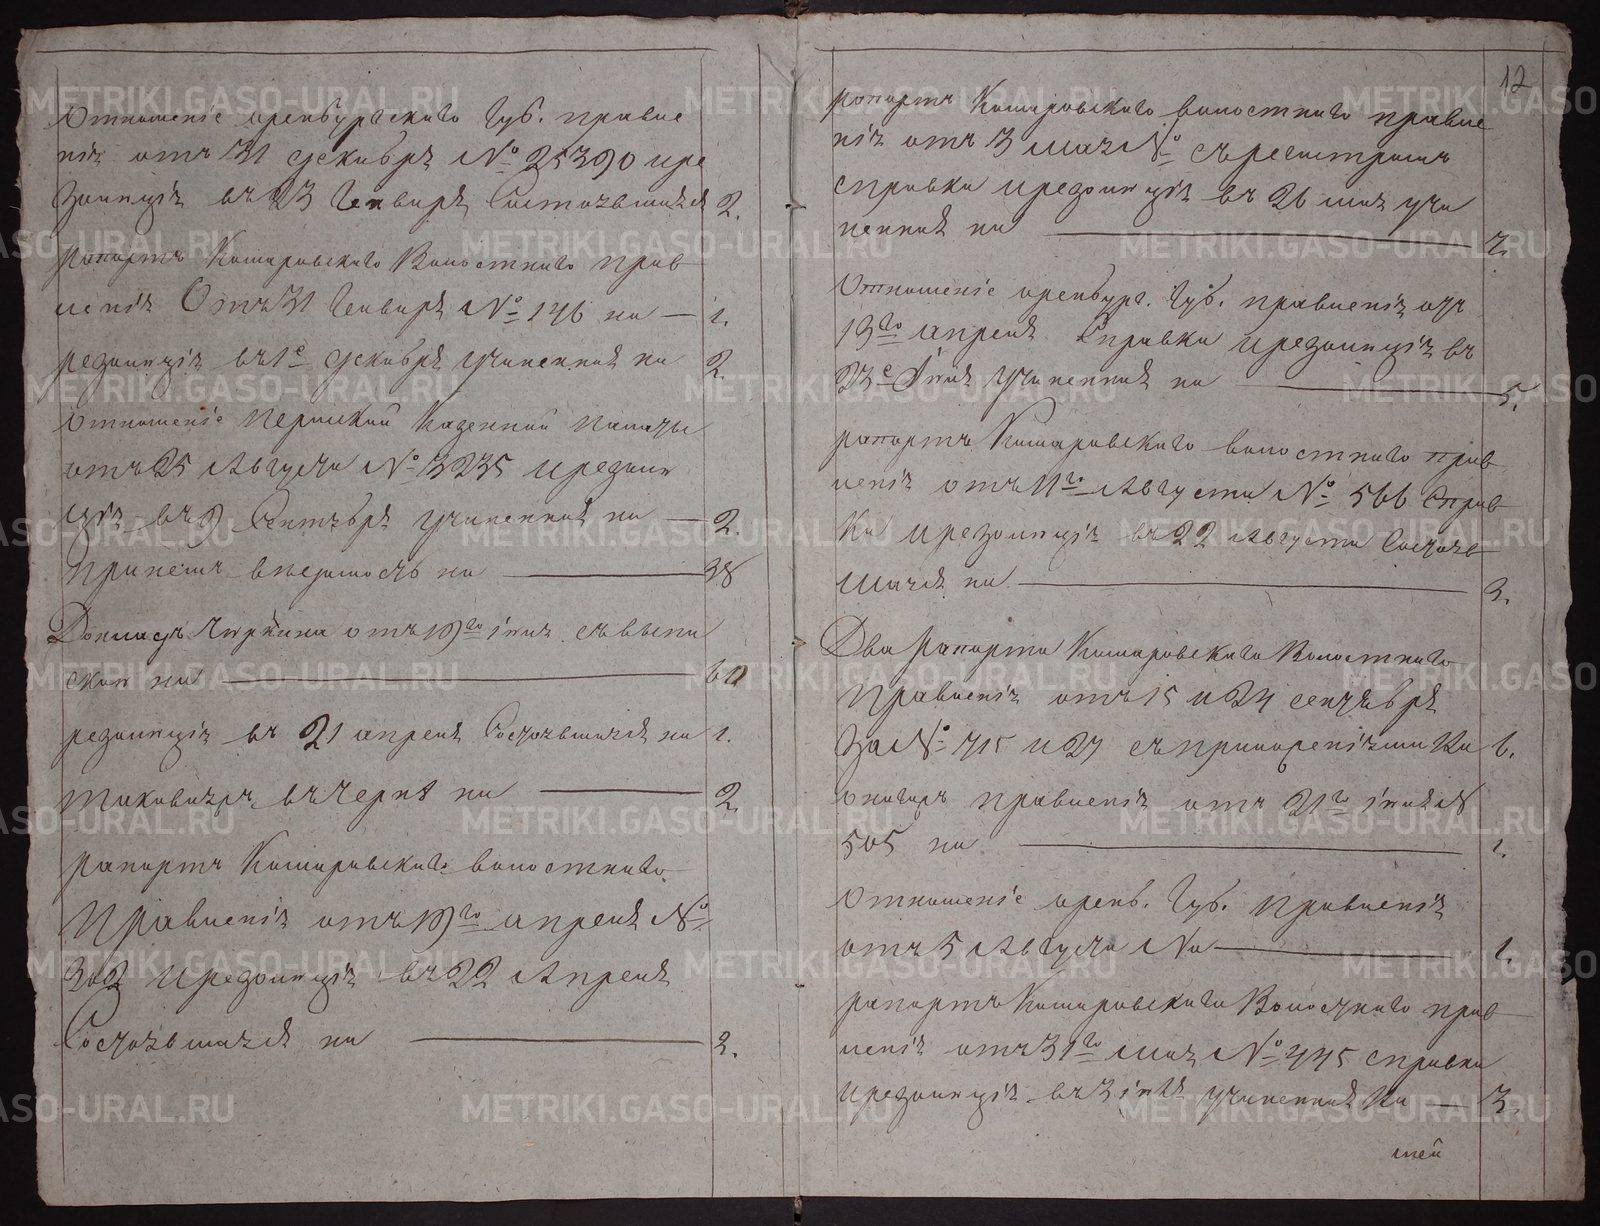 Отношеніе оренбургскаго Губ. правле
нія отъ 31 декабря № 25390 и ре
золюція въ 23 Генваря Состоявшаяся 2.
рапортъ Комаровскаго Волостнаго прав
ленія Отъ 31 Генваря № 146 на — 1.
резолюція въ 1е декабря учиненная на 2.
отношеніе пермской Казенной палаты
отъ 25 Августа № 3235 и резолю
ція въ 9 Сентября учиненная на — 2.
При немъ вѣдомость на — 38
Докладъ отъ 19го іюня съ выпи
скою на — 60
резолюція въ 21 апреля Состоявшаяся на 1.
таковаяжъ въчерне на — 2.
рапортъ Комаровскаго волостнаго
Правленія отъ 19го апреля №
302 и резолюція въ 22 Апреля
Состоявшаяся на — 2.
12
рапортъ Комаровскаго волостнаго правле
нія отъ 3 мая № съ регистромъ
справка и резолюція въ 26 мая учи
ненная на — 7.
Отношеніе оренбург. Губ. правленія отъ
13го апреля Справка и резолюція въ
23е Іюня учиненная на — 5.
рапортъ Комаровскаго волостнаго прав
ленія отъ 11го Августа № 566 Справ
ка и резолюція въ 22 Августа Состояв
шаяся на — 3.
Два рапорта Комаровскаго Волостнаго
Правленія отъ 15 и 24 сентября
За № 715 и 27 съ приложеніями на 6.
правленія отъ 21го іюня №
505 на — 1.
Отношеніе оренб. Губ. правленія
отъ 5 Августа на — 1.
рапортъ Комаровскаго Волостнаго прав
ленія отъ 31го мая № 445 справка
и резолюція въ 3 іюля учиненная на — 3.